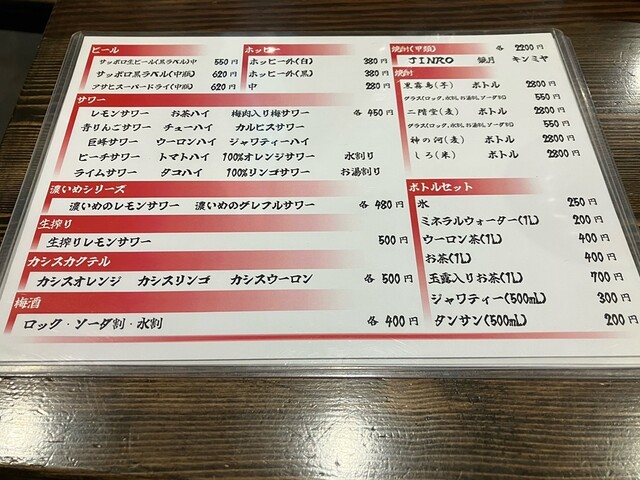 ビール
サッポロ生ビール(黒ラベル)中 550円
サッポロ黒ラベル(中瓶) 620円
アサヒスーパードライ(中瓶) 620円
ホッピー
ホッピー外(白) 380円
ホッピー外(黒) 380円
中 280円
サワー
レモンサワー お茶ハイ 梅肉入り梅サワー 各 450円
青りんごサワー チューハイ カルピスサワー
巨峰サワー ウーロンハイ ジャワティーハイ
ピーチサワー トマトハイ 100%オレンジサワー 水割り
ライムサワー タコハイ 100%リンゴサワー お湯割り
濃いめシリーズ
濃いめのレモンサワー 濃いめのグレフルサワー 各 480円
生搾り
生搾りレモンサワー 500円
カシスカクテル
カシスオレンジ カシスリンゴ カシスウーロン 各 500円
梅酒
ロック・ソーダ割・水割 各 400円
焼酎(甲類) 各 2200円
JINRO 鏡月 キンミヤ
焼酎
黒霧島(芋) ボトル 2800円
グラス(ロック、水割し、お湯割し、ソーダ割) 550円
二階堂(麦) ボトル 2800円
グラス(ロック、水割し、お湯割し、ソーダ割) 550円
神の河(麦) ボトル 2800円
しろ(米) ボトル 2800円
ボトルセット
氷 250円
ミネラルウォーター(1L) 200円
ウーロン茶(1L) 400円
お茶(1L) 400円
玉露入りお茶(1L) 700円
ジャワティー(500mL) 300円
タンサン(500mL) 200円